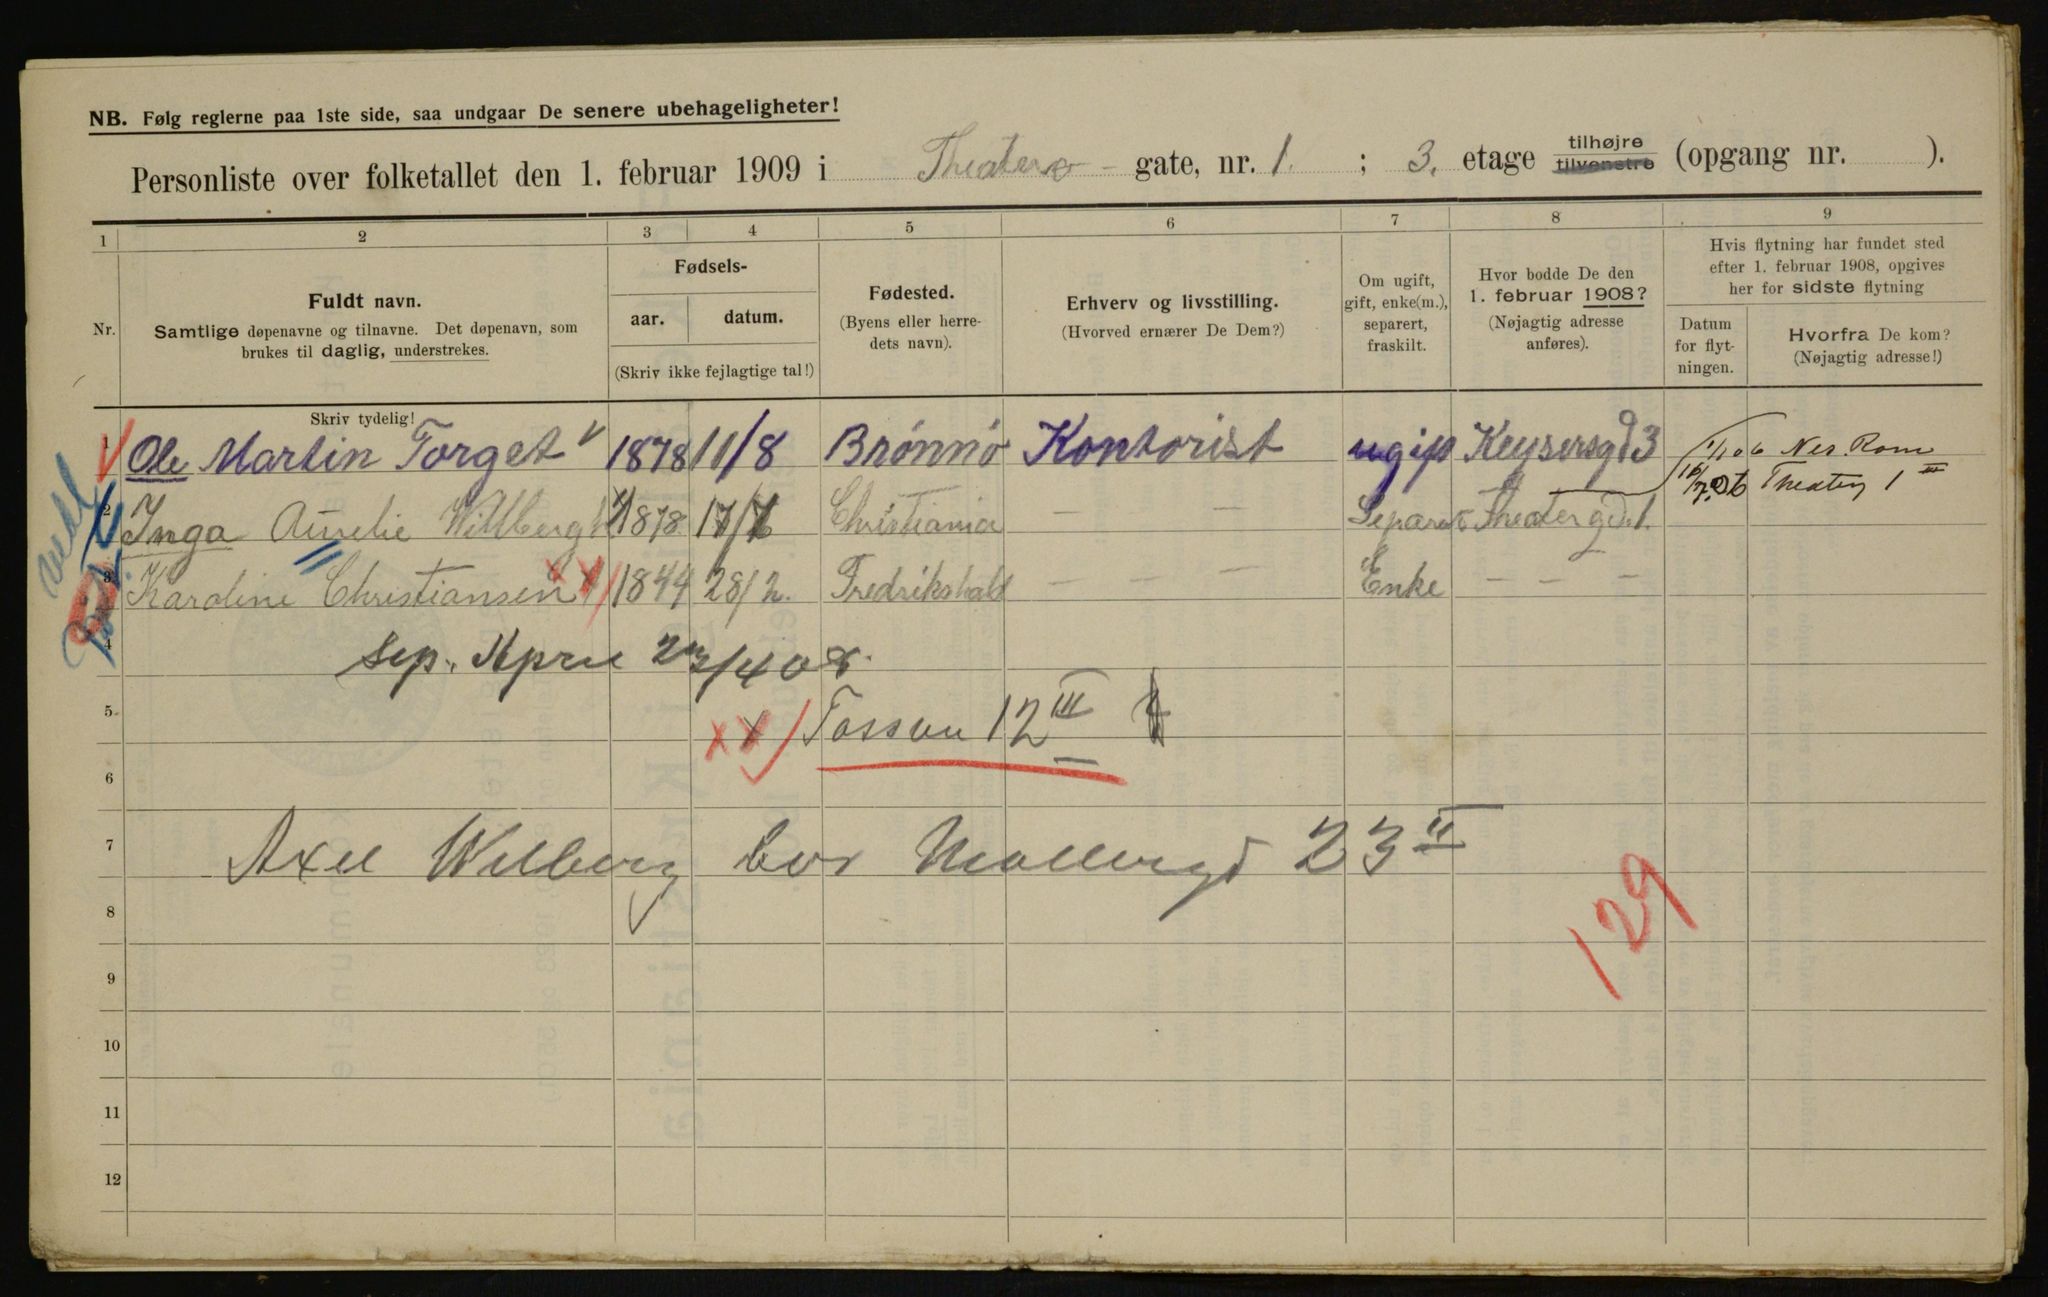 NB. Følg reglerne paa 1ste side, saa undgaar De senere ubehageligheter!
Personliste over folketallet den 1. februar 1909 i Theater - gate, nr. 1. ; 3. etage tilhøjre tilvenstre (opgang nr. ).
1 2 3 4 5 6 7 8 9
Nr.
Fuldt navn.
Samtlige døpenavne og tilnavne. Det døpenavn, som
brukes til daglig, understrekes.
Skriv tydelig!
Fødsels-
aar. datum.
(Skriv ikke fejlagtige tal!)
Fødested.
(Byens eller herre-
dets navn).
Erhverv og livsstilling.
(Hvorved ernærer De Dem?)
Om ugift,
gift, enke(m.),
separert,
fraskilt.
Hvor bodde De den
1. februar 1908?
(Nøjagtig adresse
anføres).
Hvis flytning har fundet sted
efter 1. februar 1908, opgives
her for sidste flytning
Datum
for flyt-
ningen.
Hvorfra De kom?
(Nøjagtig adresse!)
1 Ole Martin Torget 1878 11/8 Brønnø Kontorist ugift Keysersgd 3 1/10 6 Nes. Rom
2 Inga Aurelie Willberg 1878 17/7 Christiania — — — Separert Theatergd. 1. 16/7 06 Theaterg 1 III
3 Karoline Christiansen XX/ 1844 28/2. Fredrikshald — — — Enke — — —
4 Sep. April 2 /4 08.
5 XX/ 12 III
6
7 Axel Wilberg bor Møllergd 23 II
8
9
10
11
12
129